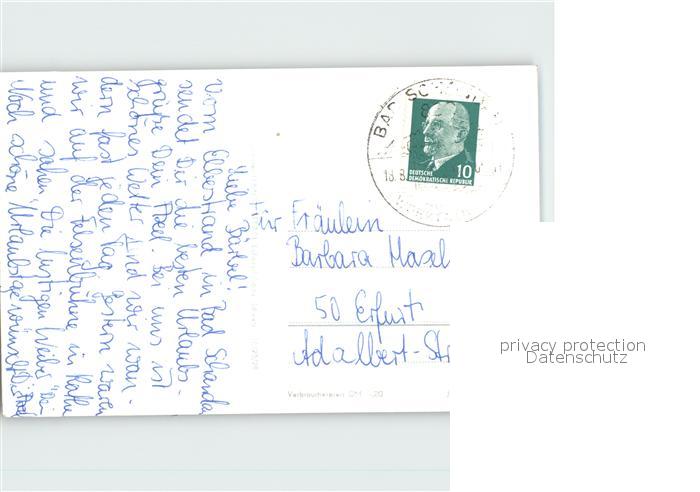 Liebe Bärbel!
Vom Elbestrand in Bad Schandau
sendet Dir die besten Urlaubs-
grüße Dein Axel. Bei uns ist
schönes Wetter und wir wan-
dern fast jeden Tag. Gestern waren
wir auf der Felsenbühne in Rathe
und sahen "Die lustigen Weiber".
Noch schöne Urlaubstage
BAD SCHANDAU
18.8
DEUTSCHE
DEMOKRATISCHE REPUBLIK
10
Für Fräulein
Barbara Masel
50 Erfurt
Adalbert-Str
Verbraucherpreis DM 0,20
privacy protection
Datenschutz